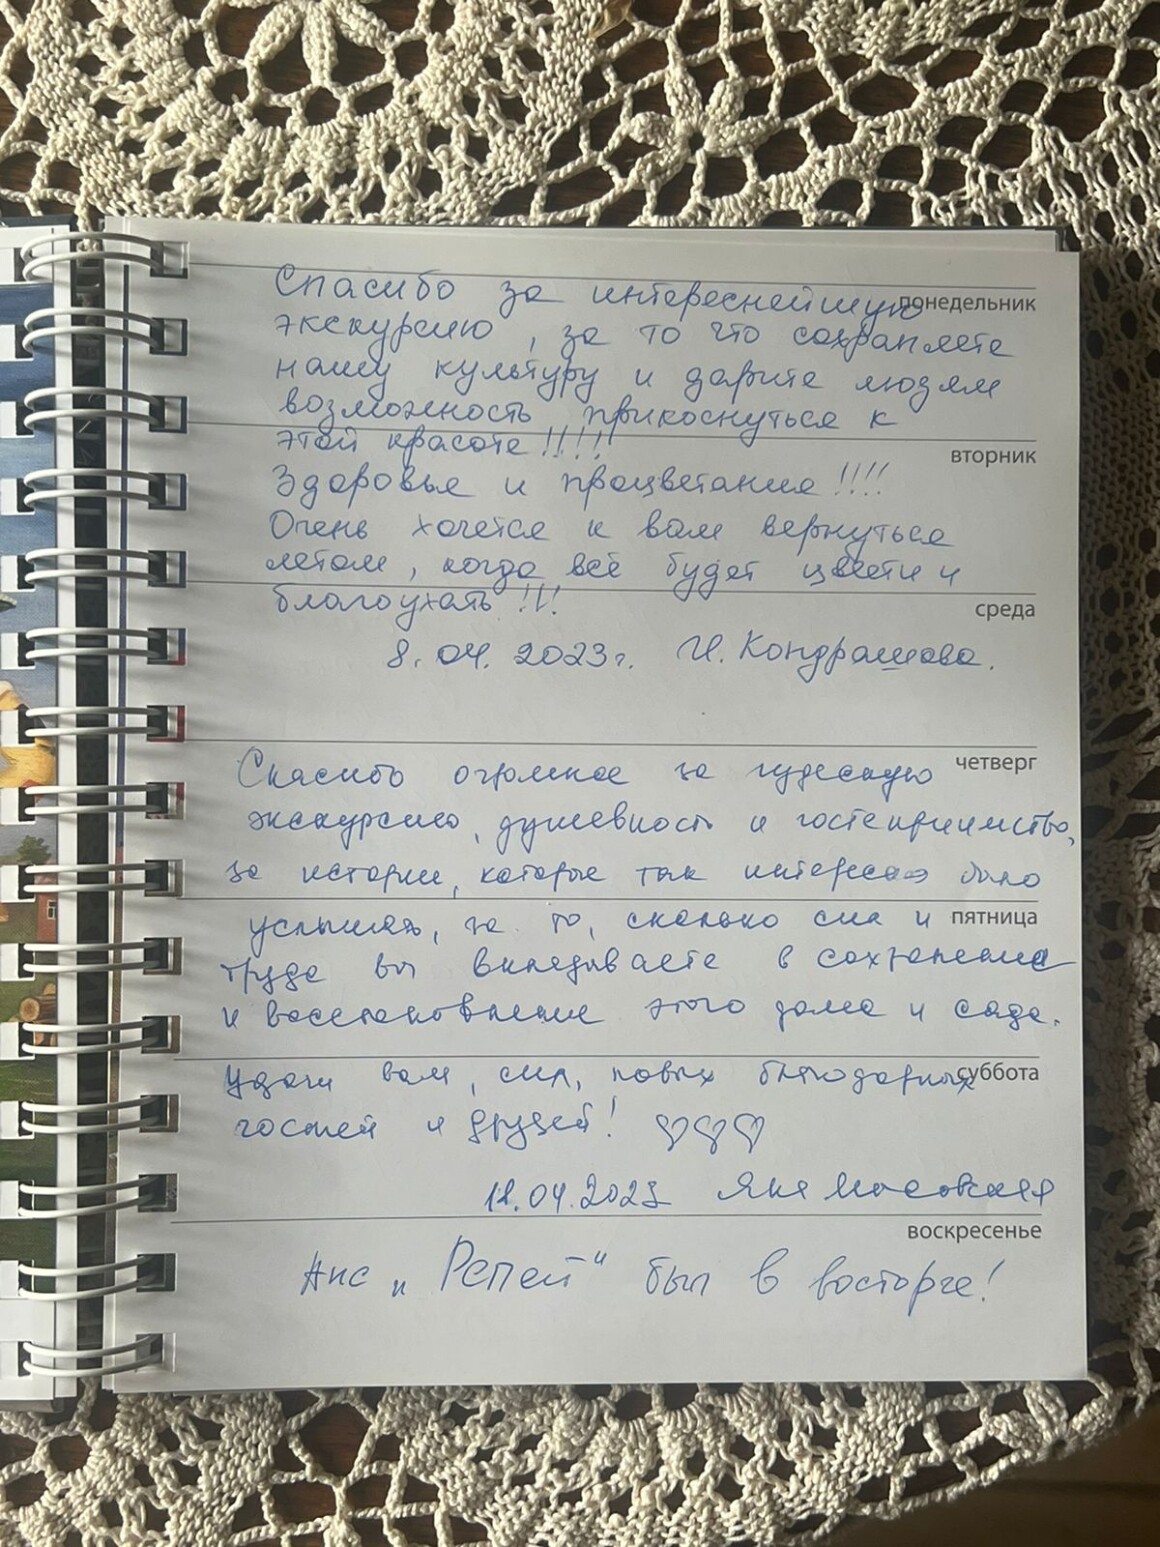 Спасибо за интереснейшую
понедельник
экскурсию, за то что сохраняете
нашу культуру и дарите людям
возможность прикоснуться к
этой красоте!!!!!
вторник
Здоровья и процветания!!!!
Очень хочется к вам вернуться
летом, когда всё будет цвести и
благоухать!!!
среда
8.04.2023г. И. Кондрашова.
четверг
Спасибо огромное за чудесную
экскурсию, душевность и гостеприимство,
за истории, которые так интересно было
услышать, за то, сколько сил и
пятница
труда вы вкладываете в сохранение
и восстановление этого дома и сада.
Удачи вам, сил, новых благодарных
суббота
гостей и друзей! ♡♡♡
11.04.2023 Яна
воскресенье
"Репей" был в восторге!